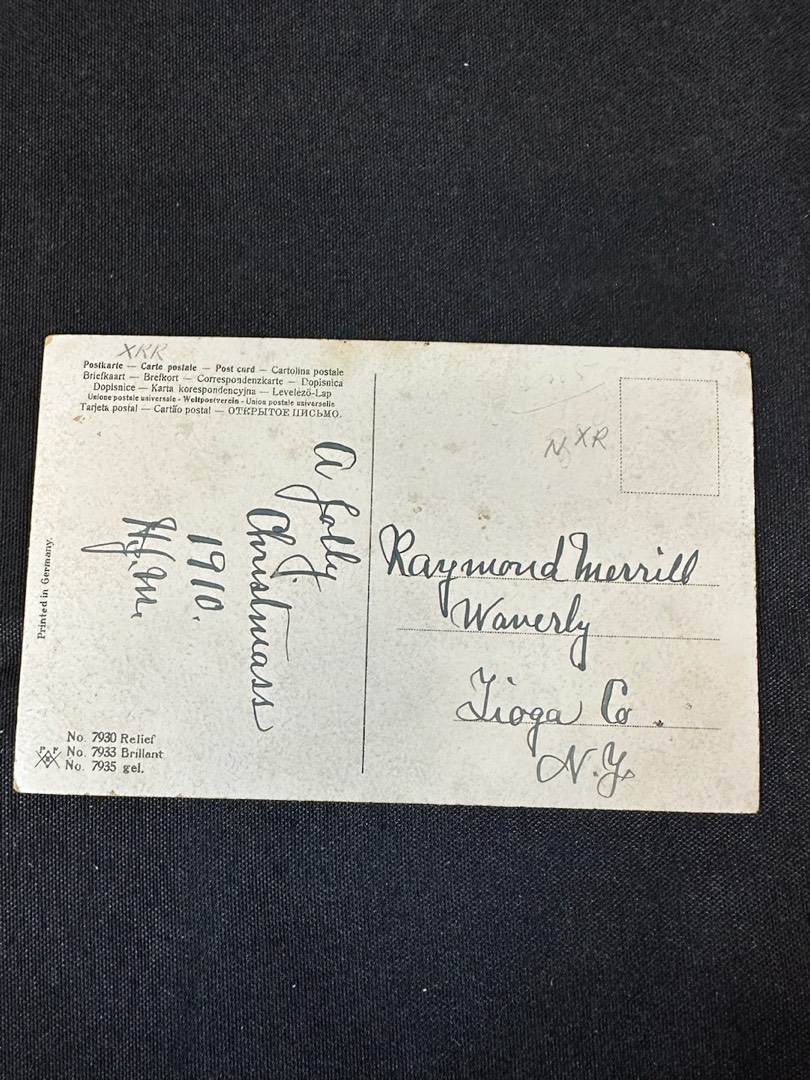 XRR
Postkarte — Carte postale — Post card — Cartolina postale
Briefkaart — Brefkort — Correspondenzkarte — Dopisnica
Dopisnice — Karta korespondencyjna — Levelező-Lap
Unione postale universale - Weltpostverein - Union postale universelle
Tarjeta postal — Cartão postal — ОТКРЫТОЕ ПИСЬМО.
A Jolly
Christmass
1910.
H.J.M.
Printed in Germany.
No. 7930 Relief
No. 7933 Brillant
No. 7935 gel.
N XR
Raymond Merrill
Waverly
Tioga Co.
N.Y.